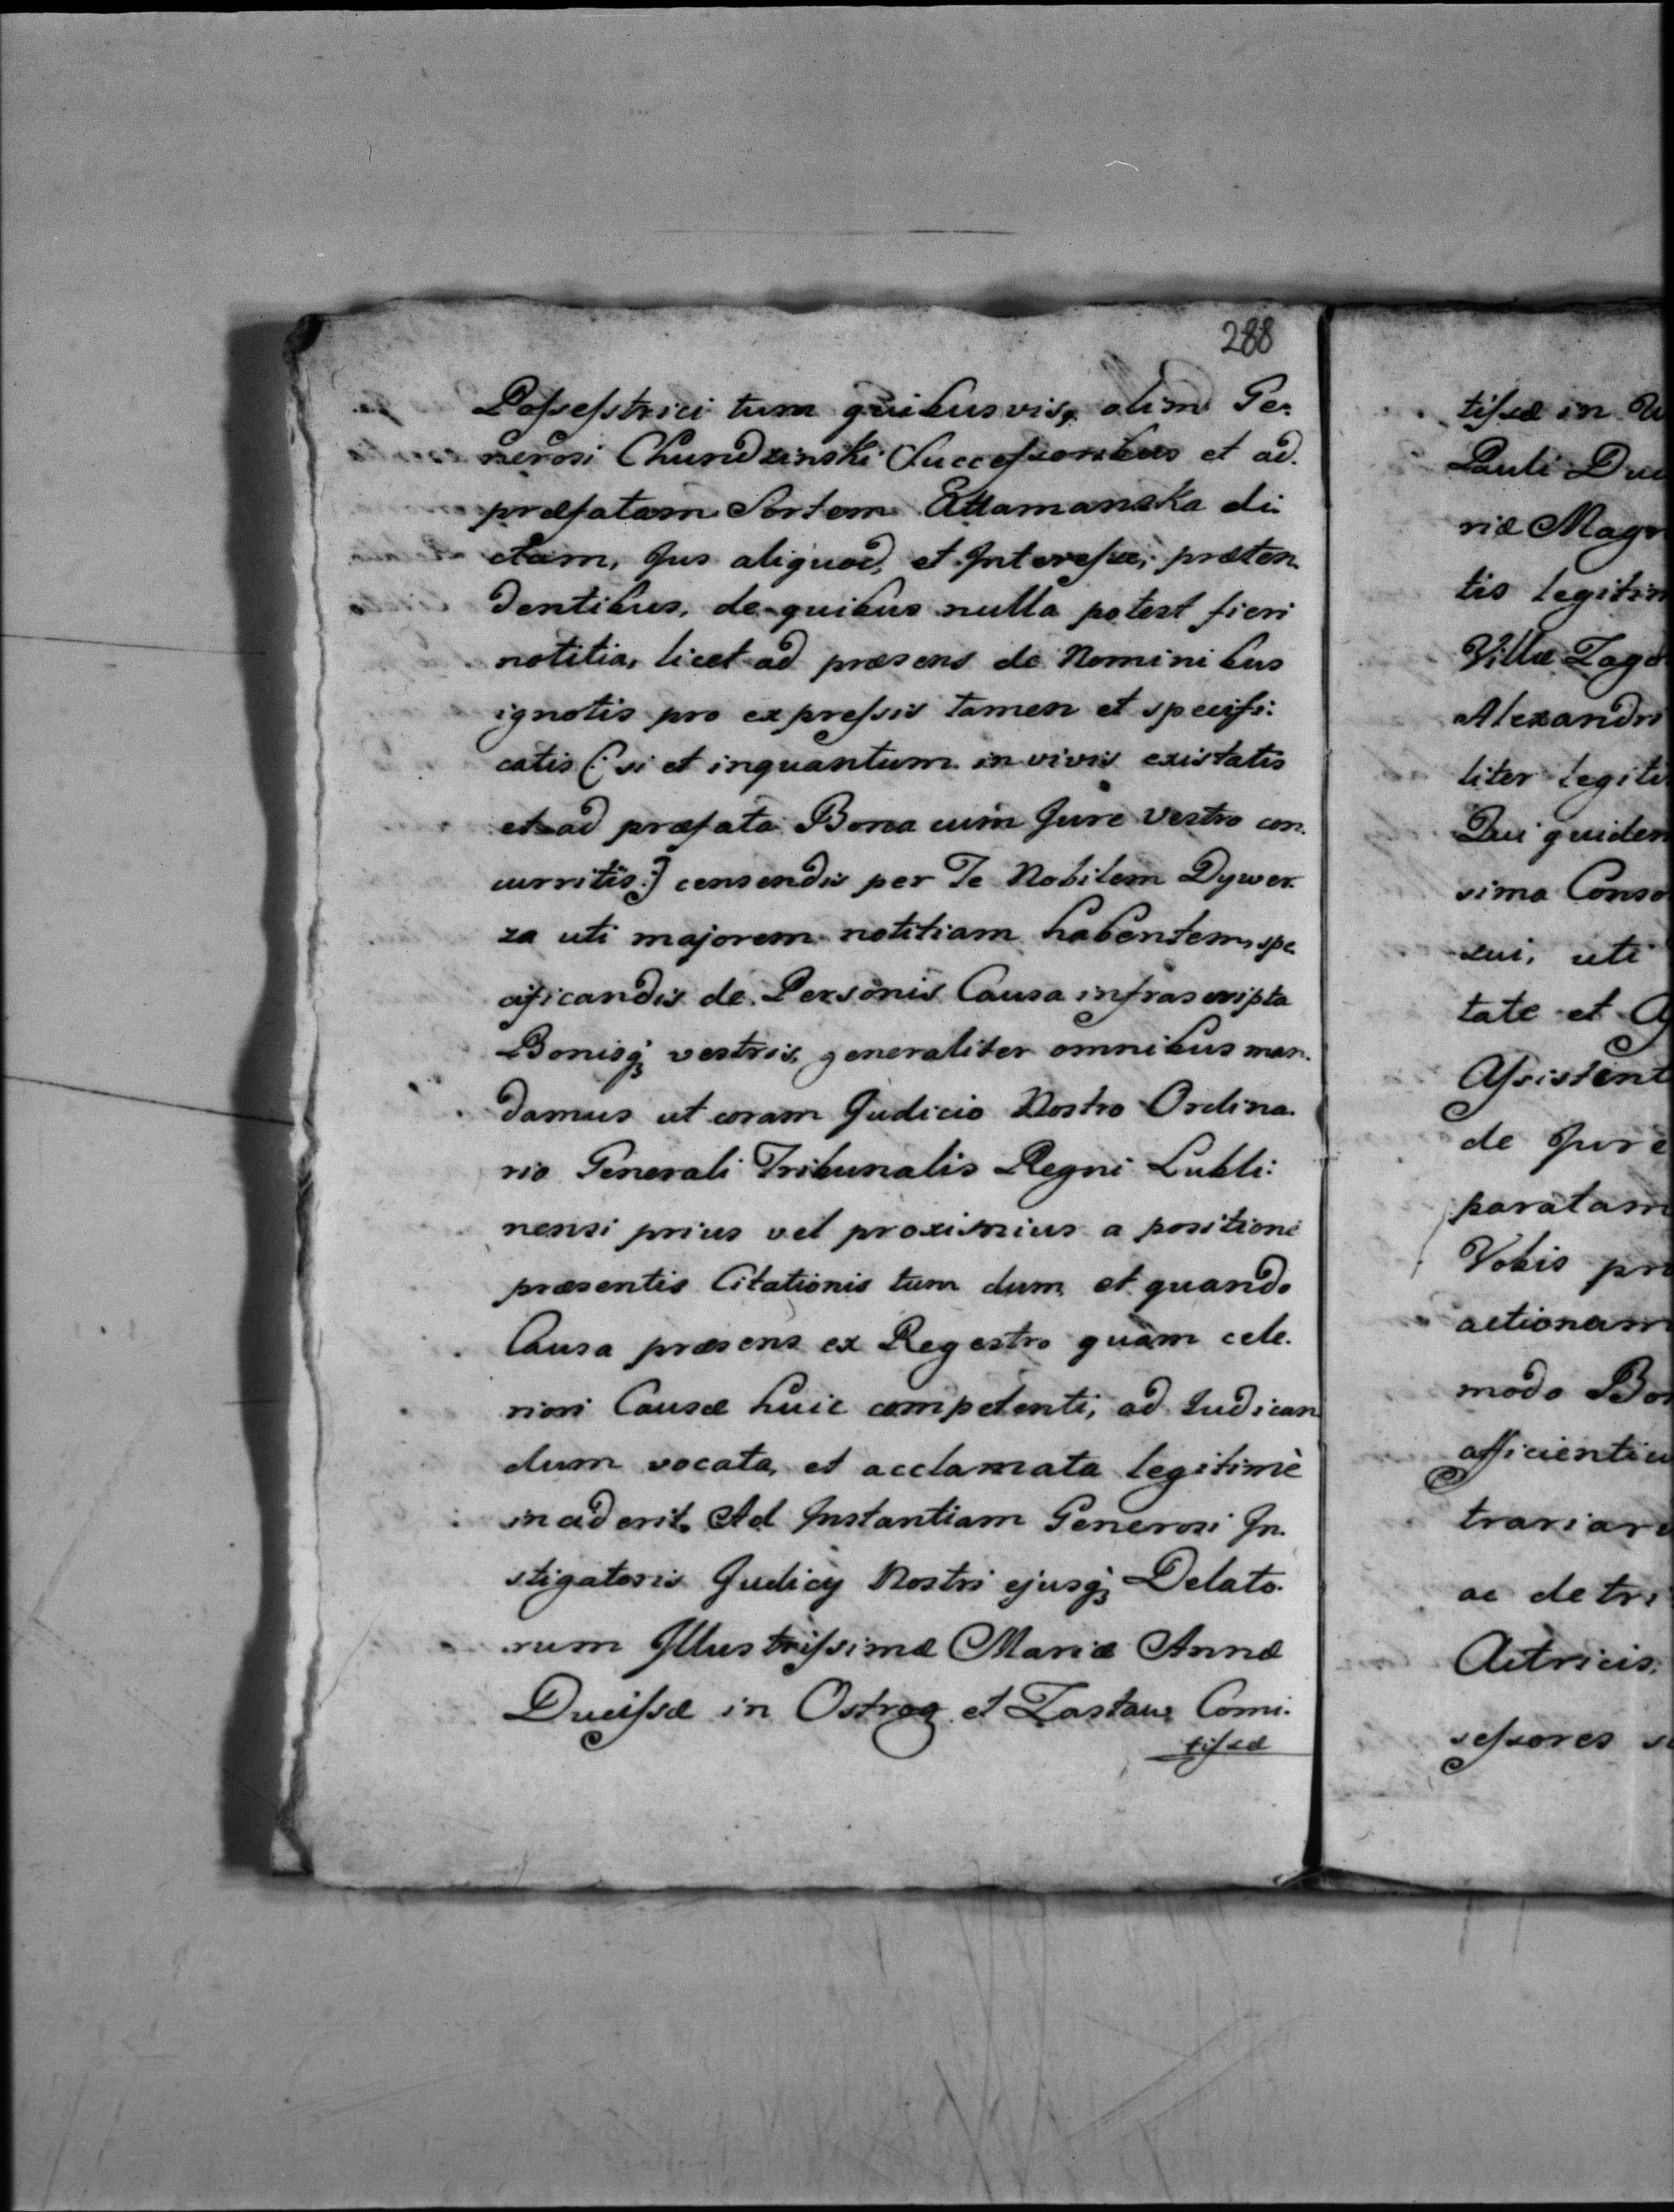 288
Possestrici tum quibusvis, olim Ge-
nerosi Chundzinski Successoribus et ad
præfatam Sortem Attamanska di-
ctam, Jus aliquod, et Interesse, præten
dentibus, de quibus nulla potest fieri
notitia, licet ad præsens de Nominibus
ignotis pro expressis tamen et specifi:
catis (: si et inquantum in vivis existatis
et ad præfata Bona cum Jure vestro con-
curritis :) censendis per Te Nobilem Dywer-
za uti majorem notitiam habentem, spe
cificandis de Personis Causa infrascripta
Bonisq vestris, generaliter omnibus man-
damus ut coram Judicio Nostro Ordina-
rio Generali Tribunalis Regni Lubli:
nensi prius vel proximius a positione
præsentis Citationis tum dum, et quando
Causa præsens ex Regestro quam cele-
riori Causæ huic competenti, ad Judican
dum vocata, et acclamata legitimè
inciderit. Ad Instantiam Generosi In-
stigatoris Judicy Nostri ejusq Delato-
rum Illustrissimæ Mariæ Annæ
Ducissæ in Ostrog et Zasław Comi-
tissæ
tissæ in W
Pauli Duc
riæ Magn
tis legitim
Villæ Zago
Alexandri
liter legiti
Qui quidem
sima Conso
sui, uti
tate et A
Assistent
de Jure
paratam
Vobis pro
actionam
modo Bon
afficientiu
trariar
ac detri
Actricis,
sessores s